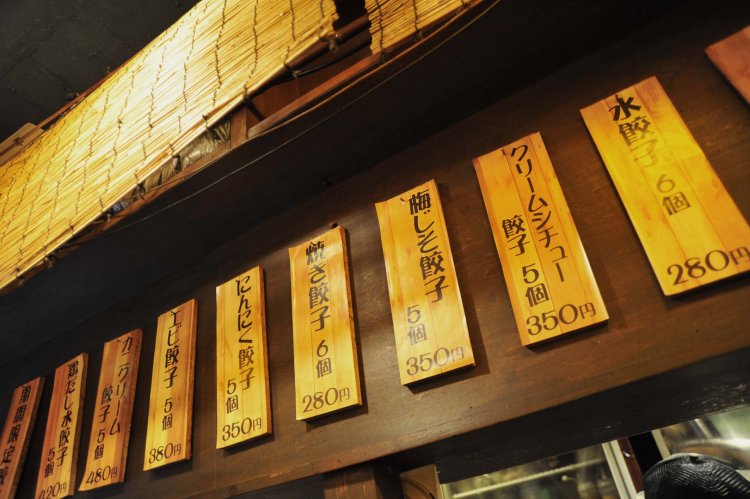 水餃子 6個
280円
クリームシチュー
餃子 5個
350円
梅じそ餃子
5個
350円
焼き餃子 6個
280円
にんにく餃子
5個
350円
エビ餃子 5個
380円
カニクリーム
餃子 5個
480円
鶏だし水餃子
5個
420円
期間限定餃